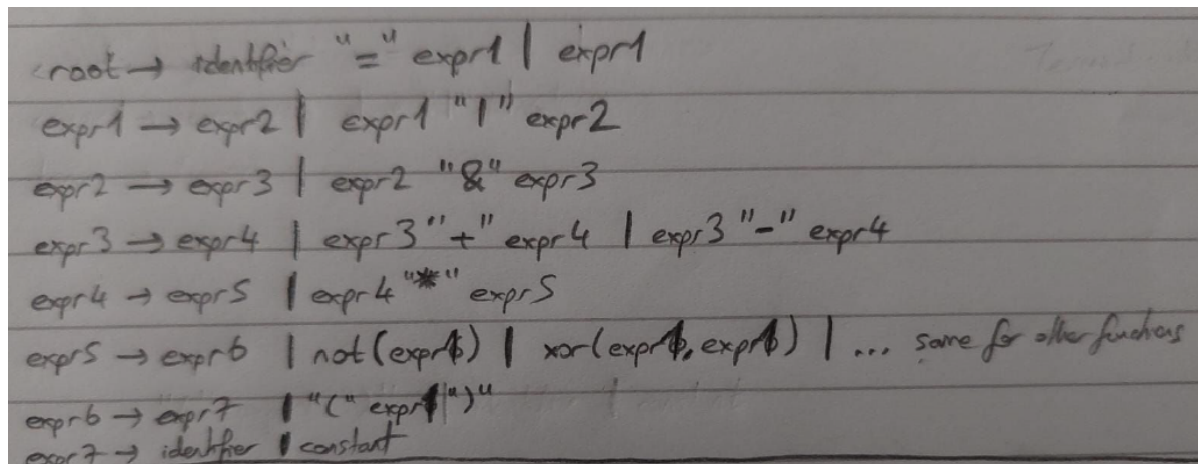 root → identifier "=" expr1 | expr1
expr1 → expr2 | expr1 "|" expr2
expr2 → expr3 | expr2 "&" expr3
expr3 → expr4 | expr3 "+" expr4 | expr3 "-" expr4
expr4 → expr5 | expr4 "*" expr5
expr5 → expr6 | not(expr1) | xor(expr1, expr1) | ... same for other functions
expr6 → expr7 | "(" expr1 ")"
expr7 → identifier | constant